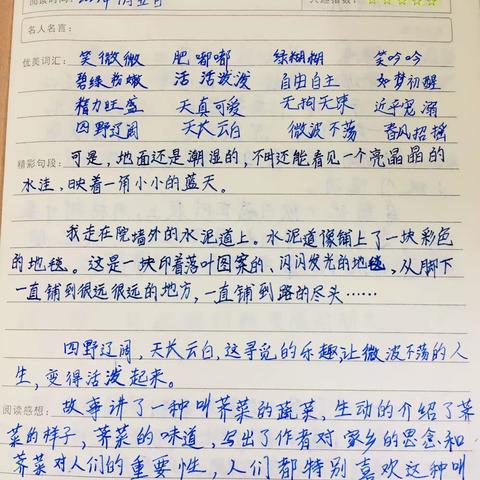 阅读时间:
兴趣指数: ☆☆☆☆☆
名人名言:
优美词汇: 笑微微 肥嘟嘟 绿糊糊 笑吟吟
碧绿粉嫩 活活泼泼 自由自主 如梦初醒
精力旺盛 天真可爱 无拘无束 近乎宠溺
四野辽阔 天长云白 微波不荡 春风招摇
精彩句段: 可是,地面还是潮湿的,不时还能看见一个亮晶晶的
水洼,映着一角小小的蓝天。
我走在院墙外的水泥道上。水泥道像铺上了一块彩色
的地毯。这是一块印着落叶图案的、闪闪发光的地毯,从脚下
一直铺到很远很远的地方,一直铺到路的尽头……
四野辽阔,天长云白,这寻觅的乐趣,让微波不荡的人
生,变得活泼起来。
阅读感想: 故事讲了一种叫荠菜的蔬菜,生动的介绍了荠
菜的样子,荠菜的味道,写出了作者对家乡的思念和
荠菜对人们的重要性,人们都特别喜欢这种叫